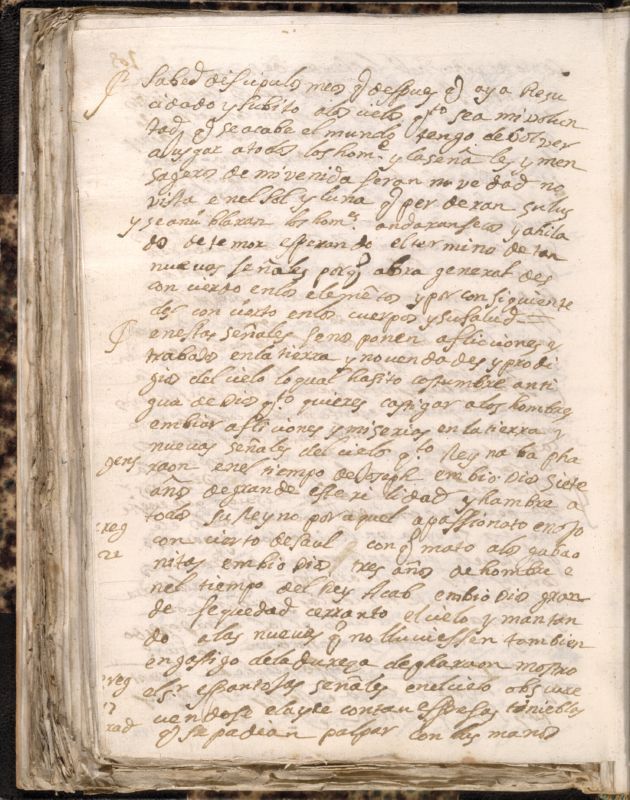 Sabed discipulos meos q̃ despues q̃ aya Resu
citado y subito alos cielos q̃to sea mi volun
tad q̃ se acabe el mundo tengo de bolver
a jusgar a todos los homs y la señal es y men
sageros de mi venida seran novedad no
vista en el sol y luna q̃ perderan su lus
y se anublaran los homs andaran secos y ahila
dos de temor esperando el termino de tan
nuevas señales porq̃ abra general des
concierto en los elemẽtos y por consiguiente
des concierto en los cuerpos y su salud
en estas señales se nos ponen afliciones y
trabajos en la tierra y novendades y prodi
gios del cielo lo qual ha sito costumbre anti
gua de Dios q̃to quieres castigar a los hombres
embiar afliciones y miserias en la tierra y
nuevas señales del cielo q̃to Reynaba pha
raon en el tiempo de Joseph embio Dios siete
gens
años de grande esterilidad y hambre a
todo su Reyno por aquel apassionato enojo
reg
con cierto de saul con q̃ mato a los gabao
nitas embio Dios tres años de hombre e
nel tiempo del Rey Acab embio Dios gran
de sequedad cerranto el cielo y mantan
do a las nuves q̃ no lluviessen tambien
en gastigo de la dureza de pharaon mostro
el sr espantosas señales en el cielo obscure
ciendose con tan espesas tinieblas
q̃ se padian palpar con las manos